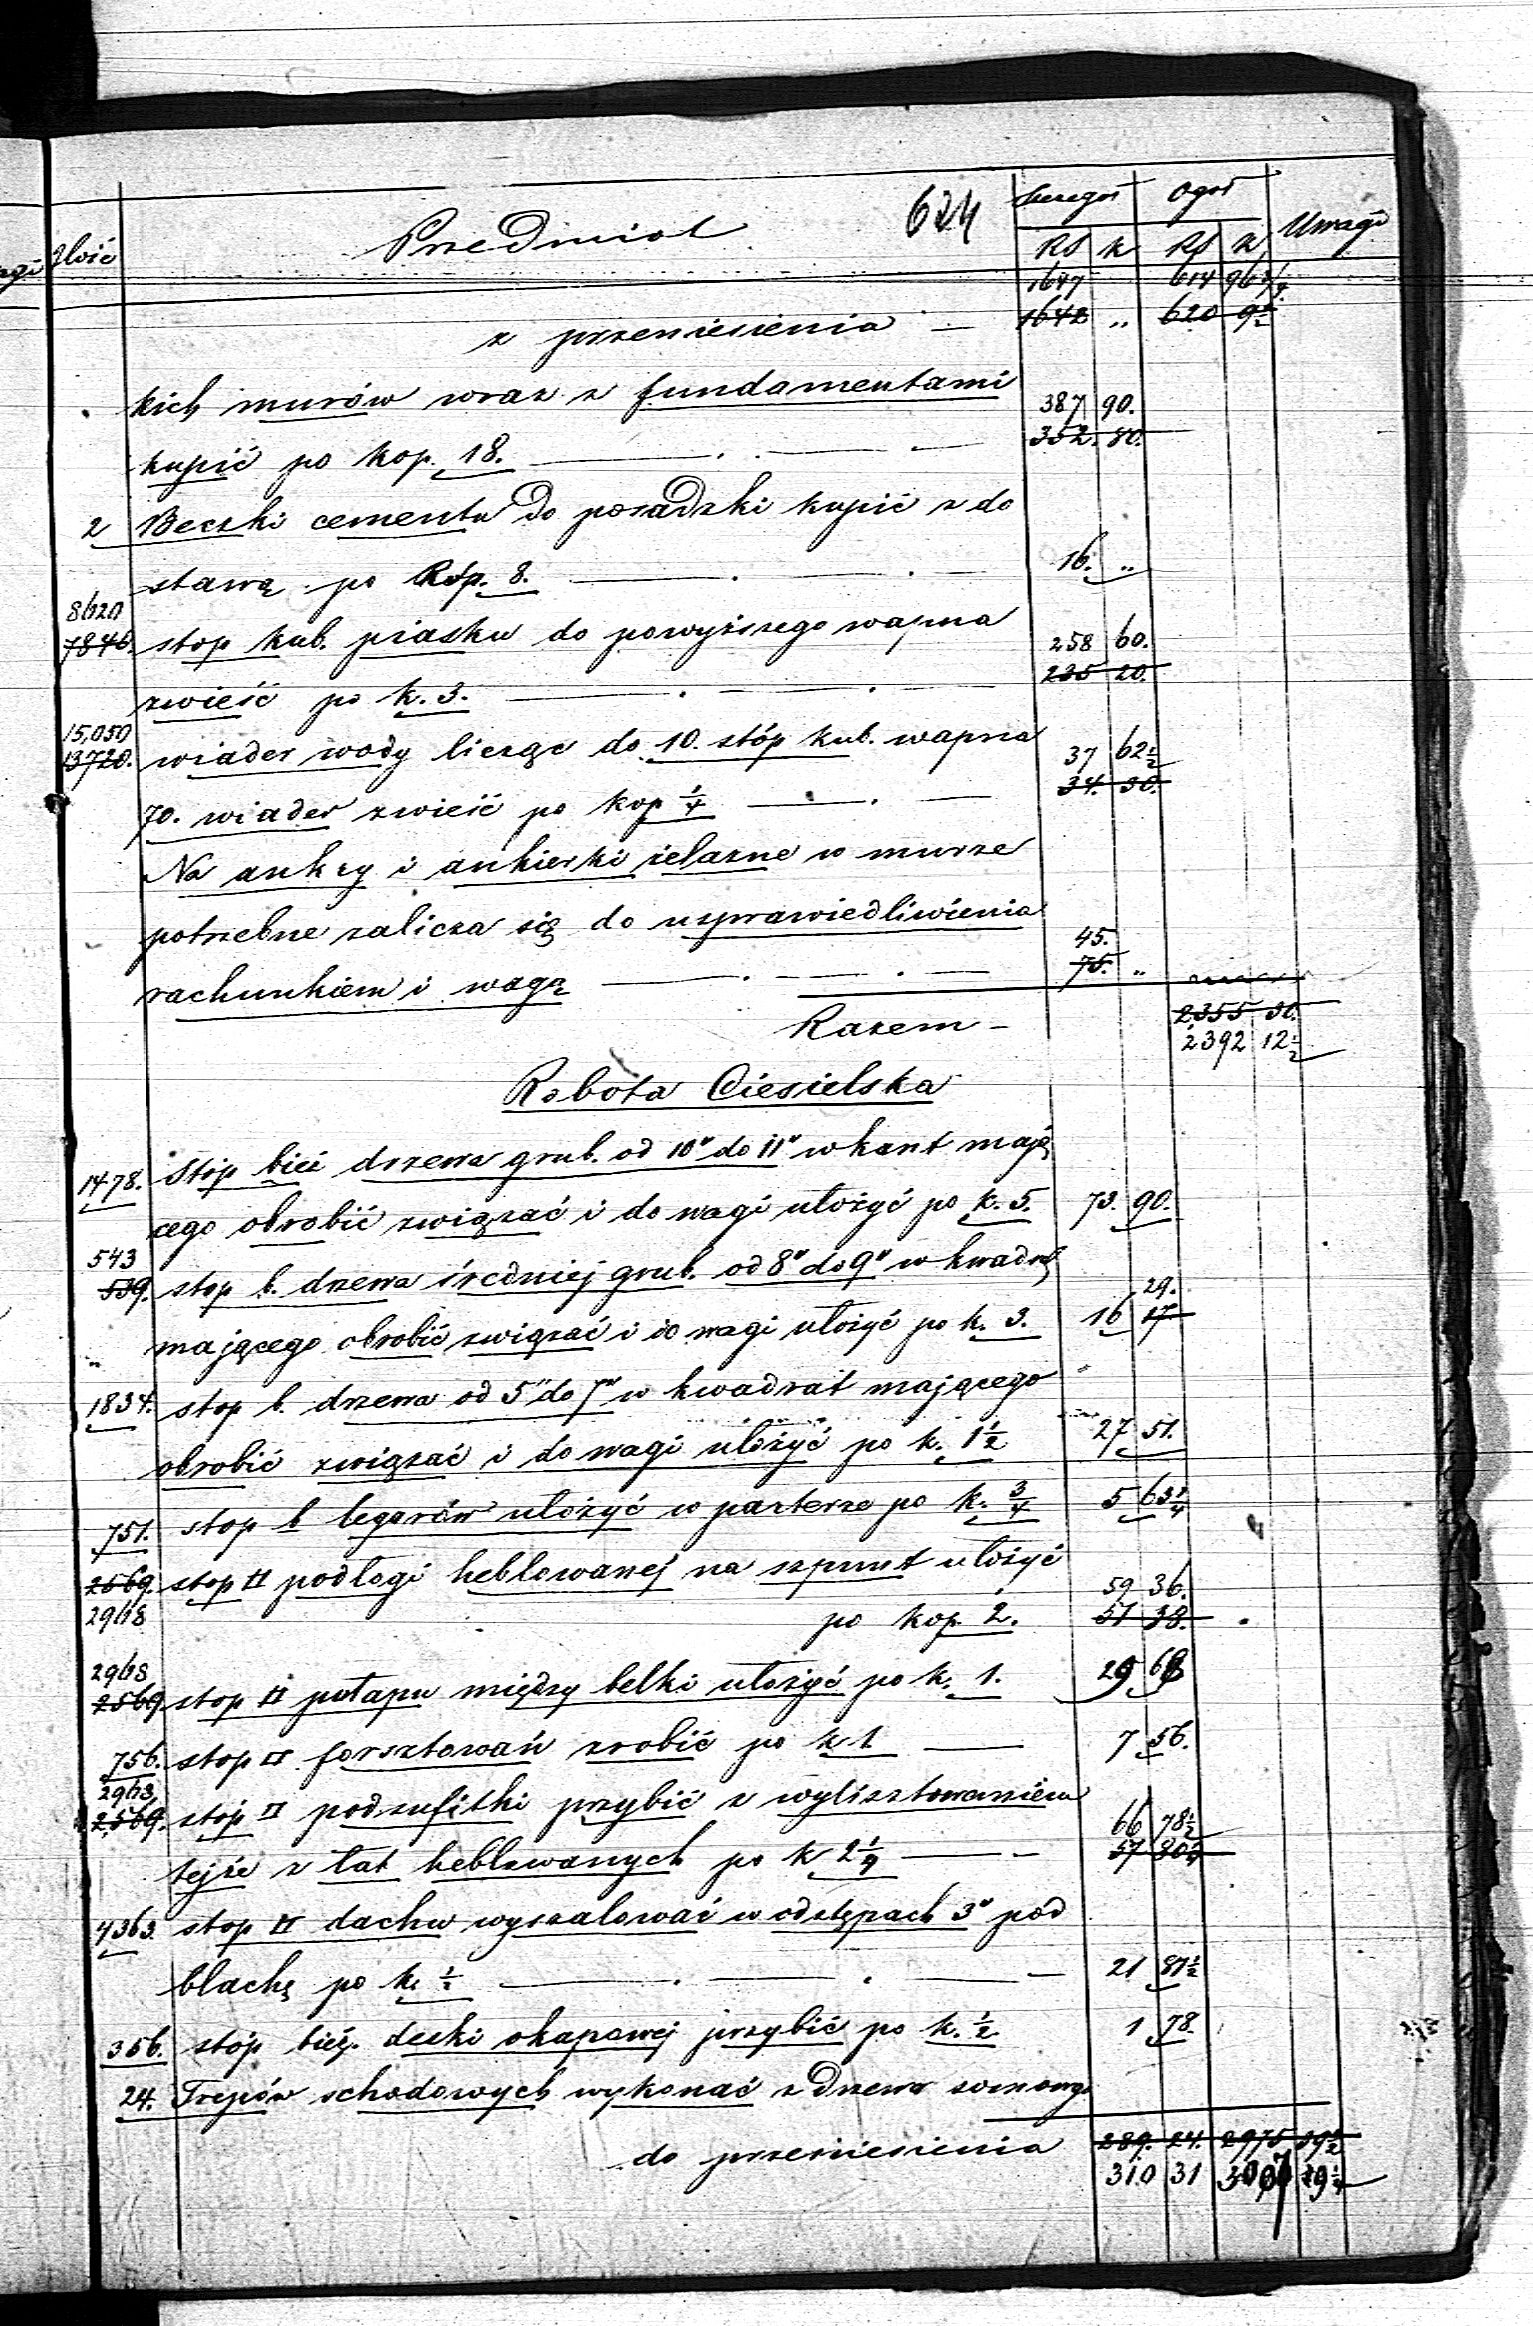 624
Ilość Przedmiot Szczegół Ogół Uwagi
RS k RS k
1647 614 96 3/4
z przeniesienia — 1642 „ 620 9 1/2
kich murów wraz z fundamentami 387 90.
kupić po kop. 18. 352. 80.
2 Beczki cementu do posadzki kupić z do
stawą po Rsp. 8. 16. „
8620
7840. stop kub. piasku do powyższego wapna 258 60.
zwieść po k. 3. 235 20.
15,050
13720. wiader wody licząc do 10. stóp kub. wapna 37 62 1/2
70. wiader zwieść po kop 1/4 34. 30.
Na ankry i ankierki żelazne w murze
potrzebne zalicza się do usprawiedliwienia 45.
rachunkiem i wagą 75. „
Razem — 2355 30.
2392 12 1/2
Robota Ciesielska
1478. Stóp bież drzewa grub. od 10" do 11" w kant mają
cego obrobić związać i do wagi ułożyć po k. 5. 73. 90.
543
539. stop b. drzewa średniej grub. od 8" do 9" w kwadrat 29.
„ mającego obrobić związać i do wagi ułożyć po k. 3. 16 17
1834. stop b. drzewa od 5" do 7" w kwadrat mającego
obrobić związać i do wagi ułożyć po k. 1 1/2 27 51.
751. stop b legarów ułożyć w parterze po k. 3/4 5 63 1/4
2569. stop □ podłogi heblowanej na szpunt ułożyć 59 36.
2968 po kop. 2. 51 38.
2968
2569 stop □ pułapu między belki ułożyć po k. 1. 29 68
756. stop □ forsztowań zrobić po k 1 7 56.
2968,
2,569. stop □ podsufitki przybić z wylisztowaniem 66 78 1/2
tejże z łat heblowanych po k 2 1/4 57 80 1/4
4363. stop □ dachu wyszalować w odstępach 3" pod
blachę po k. 1/2 21 81 1/2
356. stóp bież. deski okapowej przybić po k. 1/2. 1 78.
24. Trepów schodowych wykonać z drzewa
do przeniesienia 289. 24. 2975 39 1/2
310 31 3007 9 1/4